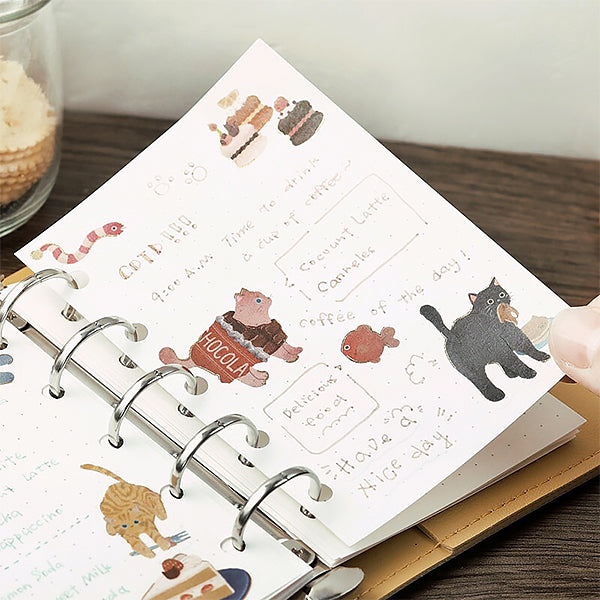 GDTD!!!
9:00 A.M. Time to drink
a cup of coffee~
Coconut Latte
Canneles
Coffee of the day!
CHOCOLA
Delicious
food
Have a
Nice day
Latte
appuccino
Soda
Milk